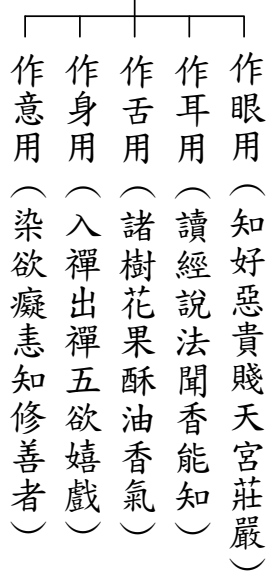 作眼用（知好惡貴賤天宮莊嚴）
作耳用（讀經說法聞香能知）
作舌用（諸樹花果酥油香氣）
作身用（入禪出禪五欲嬉戲）
作意用（染欲癡恚知修善者）